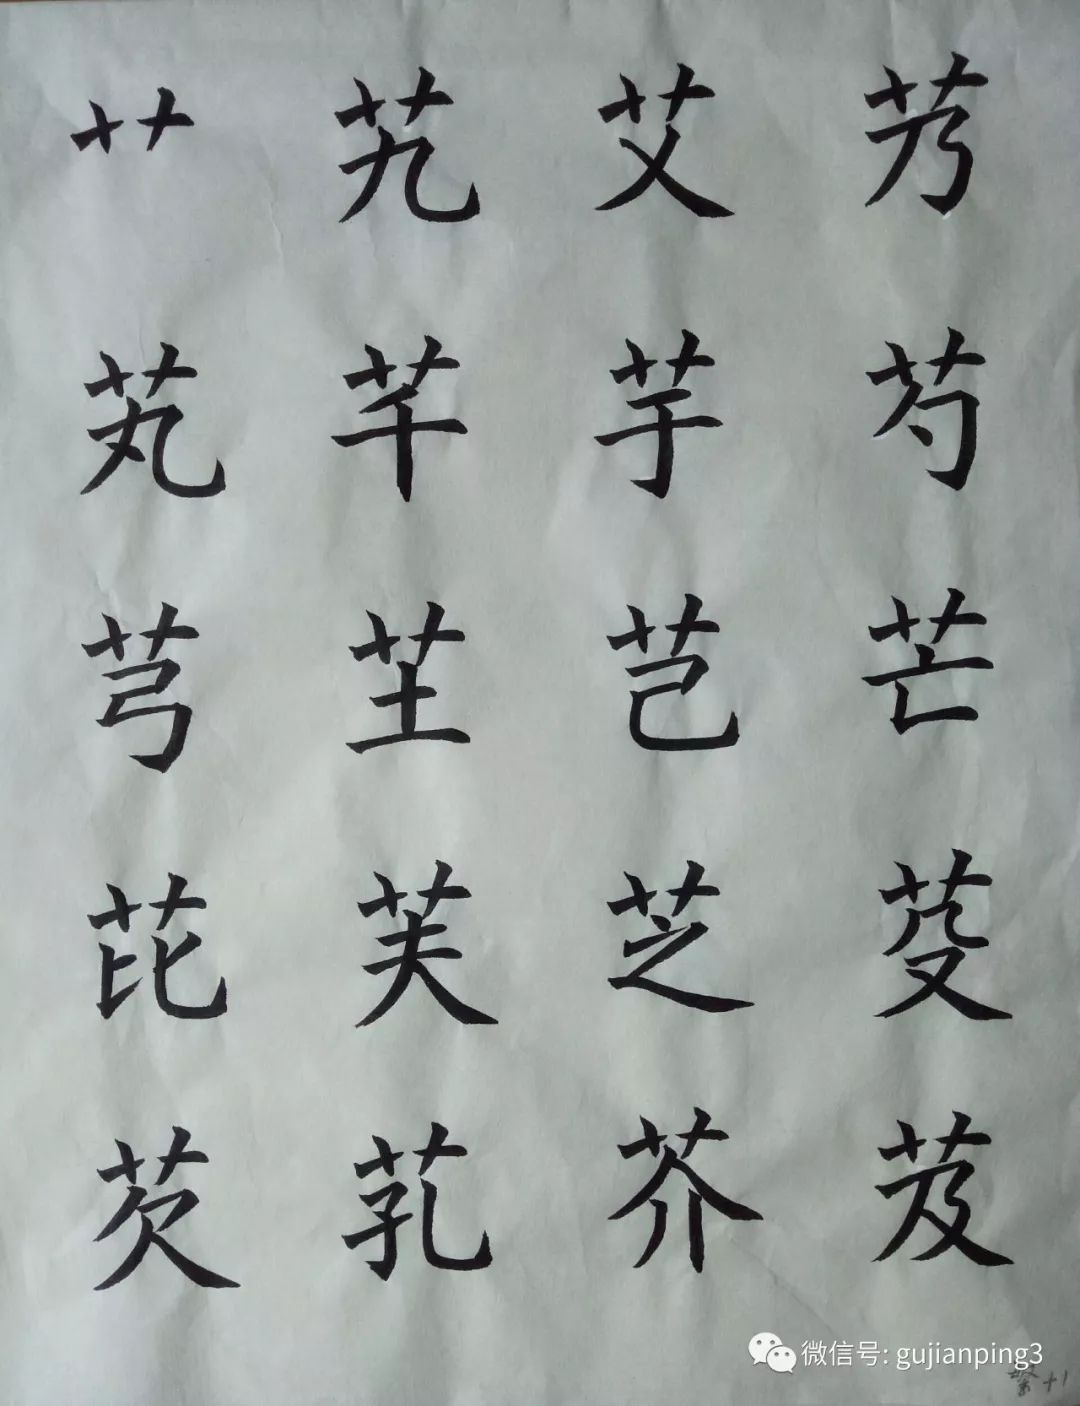 艹 艽 艾 艿
芄 芊 芋 芍
芎 芏 芑 芒
芘 芙 芝 芟
芡 芤 芥 芨
微信号: gujianping3